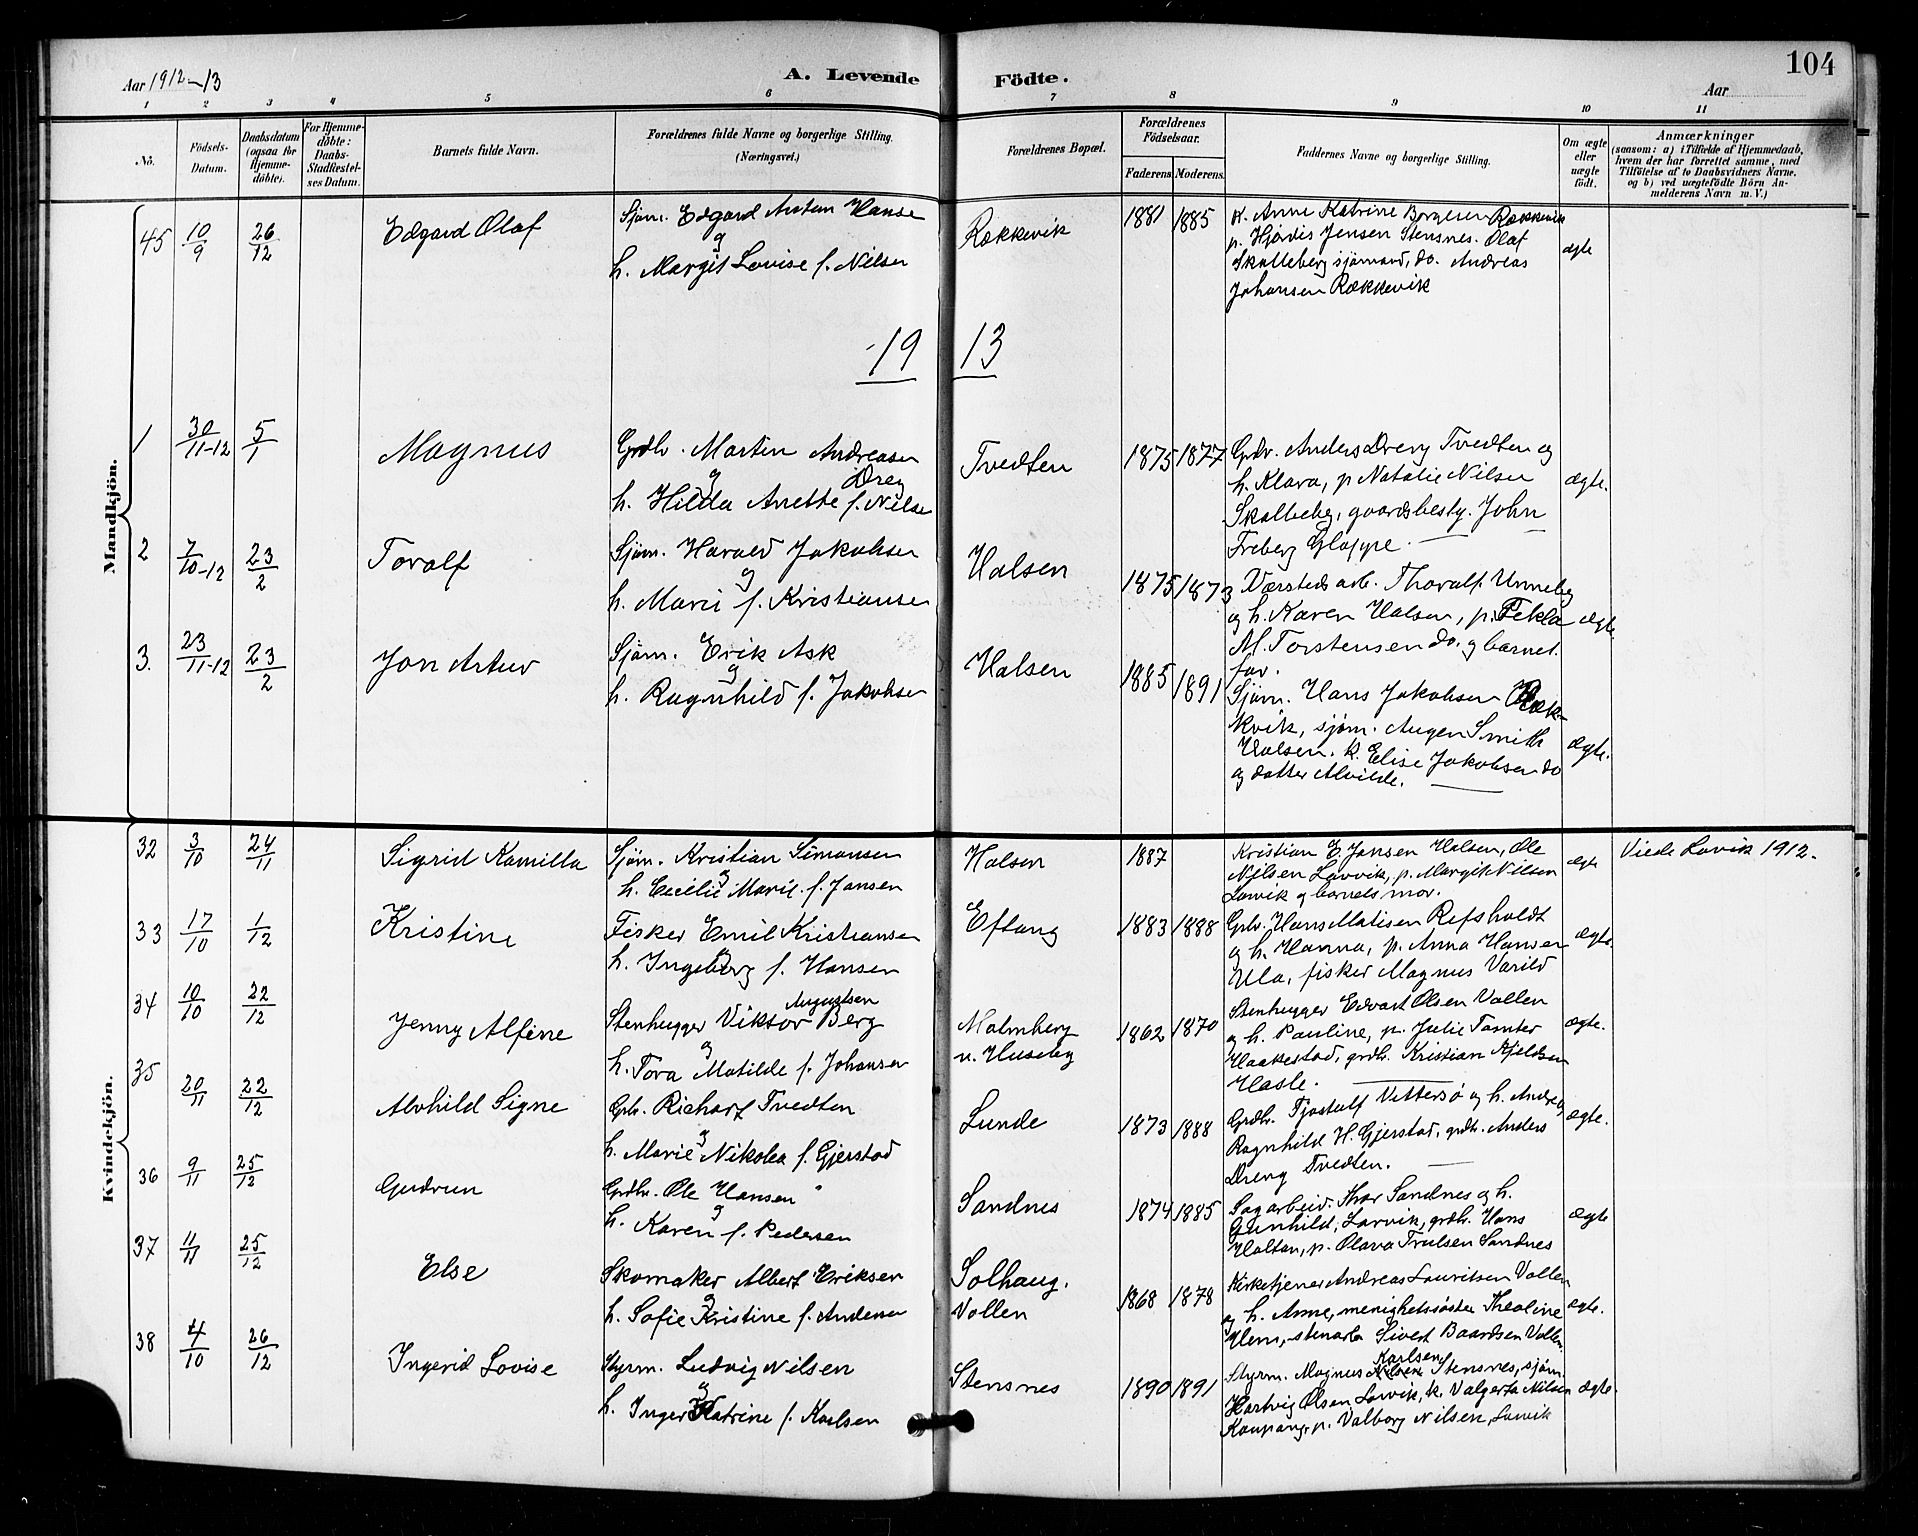 104
Aar 1912-13
A. Levende Födte.
Aar
1 2 3 4 5 6 7 8 9 10 11
No.
Födsels-Datum.
Daabsdatum (ogsaa for Hjemme-döbte).
For Hjemme-döbte: Daabs-Stadfæstel-ses Datum.
Barnets fulde Navn.
Forældrenes fulde Navne og borgerlige Stilling.
(Næringsvei.)
Forældrenes Bopæl.
Forældrenes Födselsaar.
Faderens Moderens
Faddernes Navne og borgerlige Stilling.
Om ægte eller uægte födt.
Anmærkninger
(saasom: a) i Tilfælde af Hjemmedaab,
hvem der har forrettet samme, med
Tilföielse af to Daabsvidners Navne.
og b) ved uægtefödte Börn An-
melderens Navn m. V.)
Mandkjön.
45 10/9 26/12 Edgard Olaf
Sjøm. Edgard Anton Hanse
og
h. Margit Lovise f. Nilsen
Rækkevik 1881 1885
K. Anne Katrine Borgesen Rækkevik
p. Hjørdis Jensen Stensnes. Olaf
Skalleberg sjømand, do. Andreas
Johansen Rækkevik
ægte
19 13
1 30/11-12 5/1 Magnus
Grdbr. Martin Andreasen
Dreng
og
h. Hilda Anette f. Nilse
Tvedten 1875 1877
Gbr. Anders Dreng Tvedten og
h. Klara, p Natalie Nilsen
Skalleberg, gaardsbesty. John
Freberg Gloppe.
ægte.
2 7/10-12 23/2 Toralf
Sjøm. Harald Jakobsen
og
h. Marie f. Kristiansen
Halsen 1875 1873
Værksteds arb. Thoralf Unneberg
og h. Karen Halsen, p. Tekla
M. Torstensen do. og barnet.
far.
ægte
3. 23/11-12 23/2 Jon Artur
Sjøm. Erik Ask
og
h. Ragnhild f. Jakobsen
Halsen 1885 1891
Sjøm. Hans Jakobsen Ræk-
kvik, sjøm. Augen Smith
Halsen. k. Elise Jakobsen do
og datter Alvilde.
ægte.
Kvindekjön.
32 3/10 24/11 Sigrid Kamilla
Sjøm. Kristian Simonsen
og
h. Cecilie Marie f. Jansen
Halsen 1887
Kristian E. Jansen Halsen, Ole
Nilsen Larvik, p. Margit Nilsen
Larvik og barnets mor.
ægte
Viede Larvik 1912.
33 17/10 1/12 Kristine
Fisker Emil Kristiansen
og
h. Ingeborg f. Hansen
Eftang 1883 1888
Gbr. Hans Matisen Refsholdt
og h. Hanna, p. Anna Hansen
Ula, fisker Magnus Varild
ægte.
34 10/10 22/12 Jenny Alfine
Augustsen
Stenhugger Viktor Berg
og
h. Tora Matilde f. Johansen
Malmberg
u. Huseby
1862 1870
Stenhugger Edvart Olsen Vallen
og h. Pauline, p. Julie Tamter
Haakestad, grdbr. Kristian Kjeldsen
Hasle.
ægte.
35 20/11 22/12 Alvhild Signe
Gbr. Richart Tvedten
og
h. Marie Nikolea f. Gjerstad
Lunde 1873 1888
Grdbr. Tjostolf Vittersø og h. Andrea
Ragnhild H. Gjerstad, grdbr. Anders
Dreng Tvedten.
ægte.
36 9/11 25/12 Gudrun
Grdbr. Ole Hansen
og
h. Karen f. Pedersen
Sandnes 1874 1885
Sagarbeid. Thor Sandnes og h.
Gunhild, Larvik, grdbr. Hans
Haltan, p. Olava Trulsen Sandnes
ægte
37 11/11 25/12 Else
Skomaker Albert Eriksen
og
h. Sofie Kristine f. Andersen
Solhaug.
Vollen
1868 1878
Kirketjener Andreas Lauritsen Vollen
og h. Anne, menighetssøster Theoline
Hem, stenarb Sivert Baardsen Vollen
ægte.
38 4/10 26/12 Ingerid Lovise
Styrm. Ludvig Nilsen
og
h. Inger Katrine f. Karlsen
Stensnes 1890 1891
Karlsen
Styrm. Magnus Nilsen Stensnes, sjøm.
Hartvig Olsen Larvik, k. Valgerta Nilsen
Kaupang, p. Valborg Nilsen, Larvik
ægte.